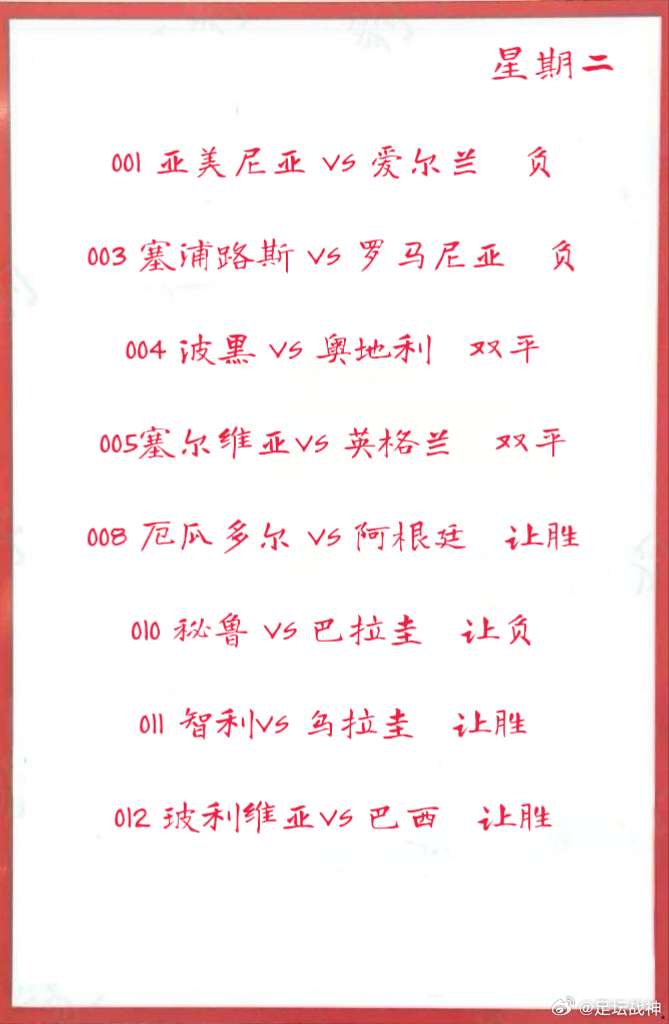 星期二
001 亚美尼亚 VS 爱尔兰 负
003 塞浦路斯 VS 罗马尼亚 负
004 波黑 VS 奥地利 双平
005塞尔维亚VS 英格兰 双平
008 厄瓜多尔 VS 阿根廷 让胜
010 秘鲁 VS 巴拉圭 让负
011 智利VS 乌拉圭 让胜
012 玻利维亚VS 巴西 让胜
@足坛战神